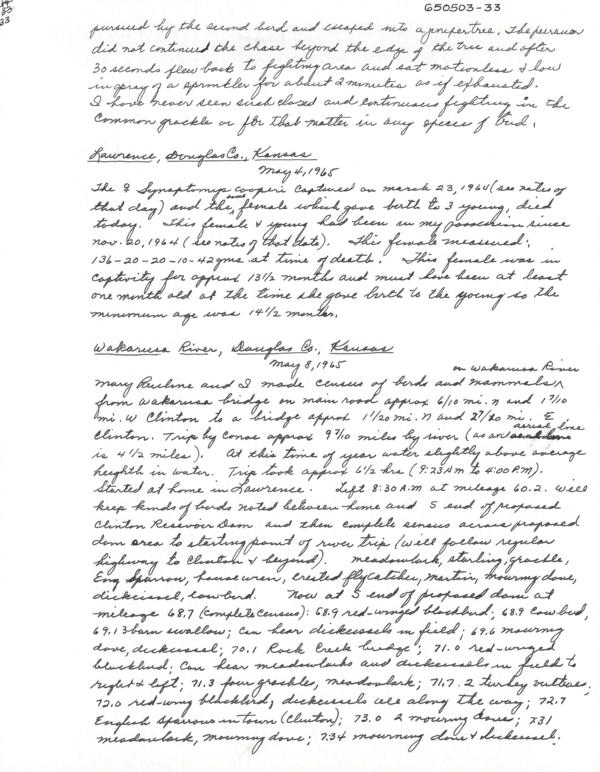 650503-33
33
23
pursued by the second bird and escaped into a juniper tree. The pursuer
did not continued the chase beyond the edge of the tree and after
30 seconds flew back to fighting area and sat motionless & low
in spray of a sprinkler for about 2 minutes as if exhausted.
I have never seen such closed and continuous fighting in the
Common grackle or for that matter in any species of bird.
Lawrence, Douglas Co., Kansas
May 4, 1965
The ♀ Synaptomys cooperi captured on March 23, 1964 (see notes of
that day) and the same female which gave birth to 3 young, died
today. This female & young had been in my possession since
Nov. 20, 1964 (see notes of that date). This female measured:
136-20-20-10-42gms at time of death. This female was in
captivity for approx 13 1/2 months and must have been at least
one month old at the time she gave birth to the young so the
minimum age was 14 1/2 months.
Wakarusa River, Douglas Co., Kansas
May 8, 1965
on Wakarusa River
Mary Pauline and I made census of birds and mammals
from Wakarusa bridge on main road approx 6/10 mi. N and 1 7/10
mi. W Clinton to a bridge approx 1 1/20 mi. N and 2 7/20 mi. E
Clinton. Trip by canoe approx 9 7/10 miles by river (as an aerial line
is 4 1/2 miles). At this time of year water slightly above average
heighth in water. Trip took approx 6 1/2 hrs (9:23 AM to 4:00 P.M).
Started at home in Lawrence. Left 8:30 A.M at mileage 60.2. Will
keep kinds of birds noted between home and S end of proposed
Clinton Resevoir Dam and then complete census across proposed
dam area to starting point of river trip (will follow regular
highway to Clinton & beyond). meadowlark, starling, grackle,
Eng Sparrow, house wren, crested flycatcher, martin, mourning dove,
dickcissel, cowbird. Now at S end of proposed dam at
mileage 68.7 (complete census): 68.9 red-winged blackbird; 68.9 cowbird,
69.1 3 barn swallow; Can hear dickcissels in field; 69.6 mourning
dove, dickcissel; 70.1 Rock Creek bridge; 71.0 red-winged
blackbird; Can hear meadowlarks and dickcissels in field to
right & left; 71.3 four grackle, meadowlark; 71.7. 2 turkey vultures;
72.0 red-wing blackbird, dickcissels all along the way; 72.7
English sparrows in town (Clinton); 73.0 2 mourning doves; 73.1
meadowlark, mourning dove; 73.4 mourning dove & dickcissel;